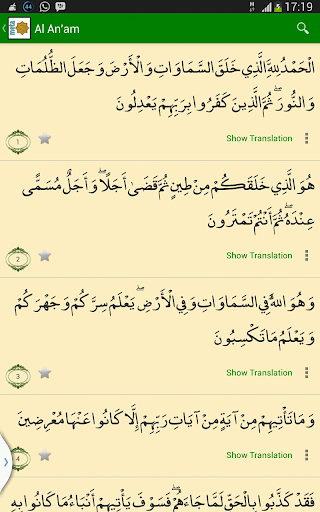 44
17:19
meta
Al An'am
الْحَمْدُ لِلَّهِ الَّذِي خَلَقَ السَّمَاوَاتِ وَالْأَرْضَ وَجَعَلَ الظُّلُمَاتِ
وَالنُّورَ ۖ ثُمَّ الَّذِينَ كَفَرُوا بِرَبِّهِمْ يَعْدِلُونَ
1
Show Translation
هُوَ الَّذِي خَلَقَكُمْ مِنْ طِينٍ ثُمَّ قَضَىٰ أَجَلًا ۖ وَأَجَلٌ مُسَمًّى
عِنْدَهُ ۖ ثُمَّ أَنْتُمْ تَمْتَرُونَ
2
Show Translation
وَهُوَ اللَّهُ فِي السَّمَاوَاتِ وَفِي الْأَرْضِ ۖ يَعْلَمُ سِرَّكُمْ وَجَهْرَكُمْ
وَيَعْلَمُ مَا تَكْسِبُونَ
3
Show Translation
وَمَا تَأْتِيهِمْ مِنْ آيَةٍ مِنْ آيَاتِ رَبِّهِمْ إِلَّا كَانُوا عَنْهَا مُعْرِضِينَ
4
Show Translation
فَقَدْ كَذَّبُوا بِالْحَقِّ لَمَّا جَاءَهُمْ ۖ فَسَوْفَ يَأْتِيهِمْ أَنْبَاءُ مَا كَانُوا بِهِ